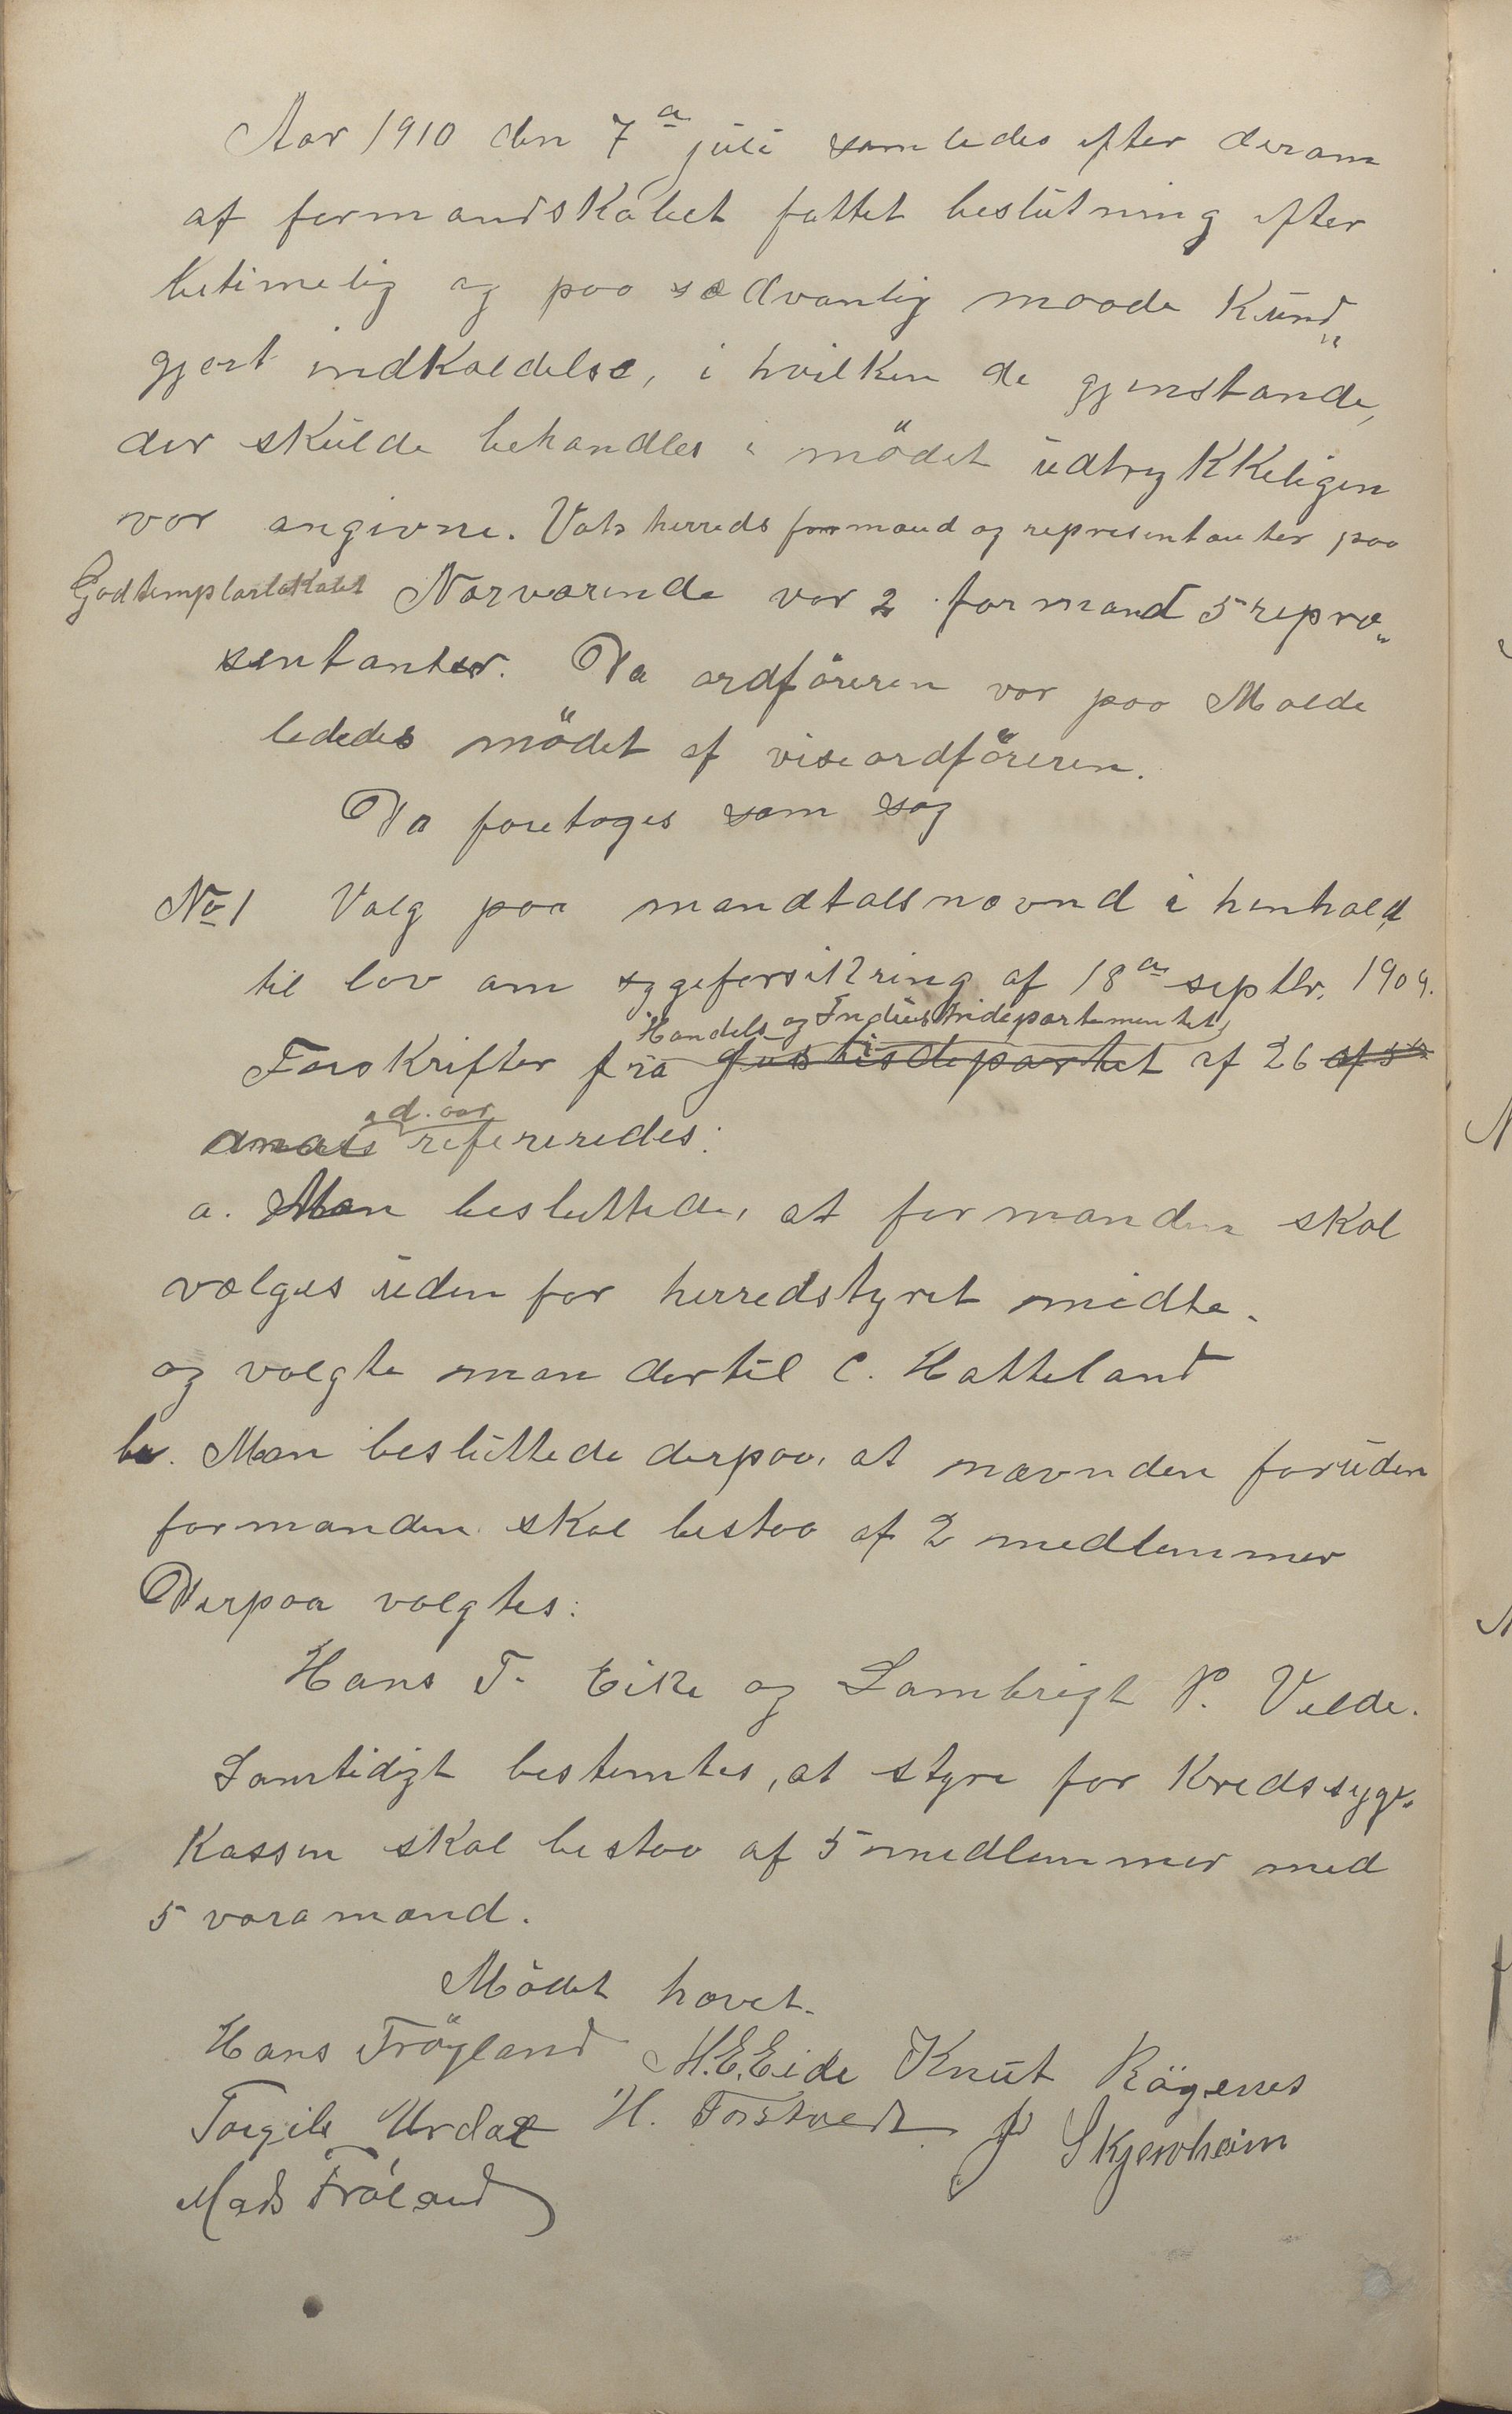 Aar 1910 den 7de juli samledes efter derom
af formandskabet fattet beslutning efter
betimelig og paa sædvanlig maade kund„
gjort indkaldelse, i hvilken de gjenstande,
der skulde behandles i mödet udtrykkeligen
var angivne. Vats herreds formænd og representanter paa
Godtemplarlokalet Nærværende var 2 formænd 5 repræ„
sentanter. Da ordföreren var paa Molde
lededes mödet af viseordföreren.
Da foretoges som sag
No 1 Valg paa mandtalsnævnd i henhold
til lov om sygeforsikring af 18de septbr. 1909.
Handels og Industridepartementet,
Forskrifter fra Justisdepartet af 26
d. aar
refereredes:
a. Man besluttede, at formanden skal
vælges uden for herredstyret midte.
og valgte man dertil C. Hatteland
b. Man besluttede derpaa, at nævnden foruden
formanden skal bestaa af 2 medlemmer
Derpaa valgtes:
Hans T. Eike og Lambrigt P. Velde.
Samtidigt bestemtes, at styre for Kredssyge„
kassen skal bestaa af 5 medlemmer med
5 varamænd.
Mödet hævet.
Hans Fröyland M.E. Eide Knut Rögenes
Torgils Urdal H. Forstvedt J Skjerheim
Mads Fröland